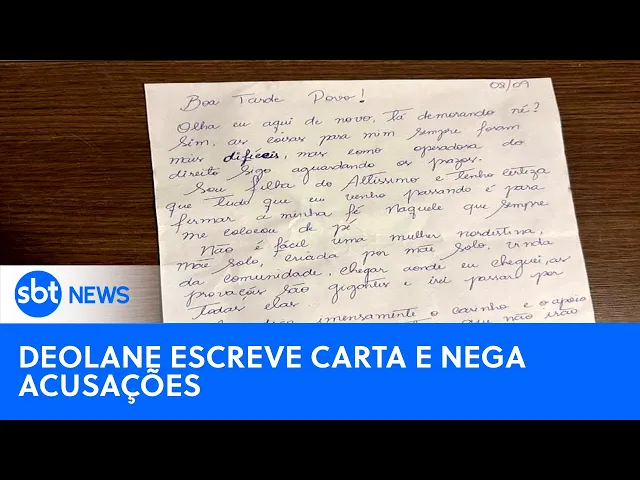 08/09
Boa Tarde Povo!
Olha eu aqui de novo, Tá demorando né?
Sim, as coisas para mim sempre foram
mais difíceis, mas como operadora do
direito sigo aguardando os prazos.
Sou filha do Altíssimo e tenho certeza
que tudo que eu venho passando é para
firmar a minha fé Naquele que sempre
me colocou de pé
Não é fácil uma mulher nordestina,
mãe solo, criada por mãe solo, vinda
da comunidade, chegar aonde eu cheguei, as
provações são gigantes e irei passar por
todas elas
imensamente o carinho e o apoio
que não irão
sbt NEWS
DEOLANE ESCREVE CARTA E NEGA
ACUSAÇÕES